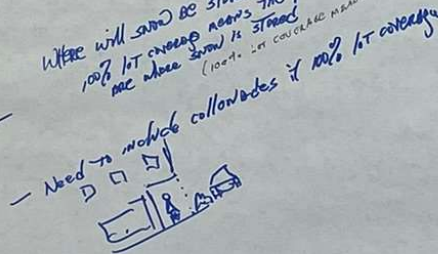 WHERE WILL SNOW BE
100% LOT COVERAGE MEANS
ARE WHERE SNOW IS STORED
(100% LOT COVERAGE
- Need to include collonades if 100% LOT coverage